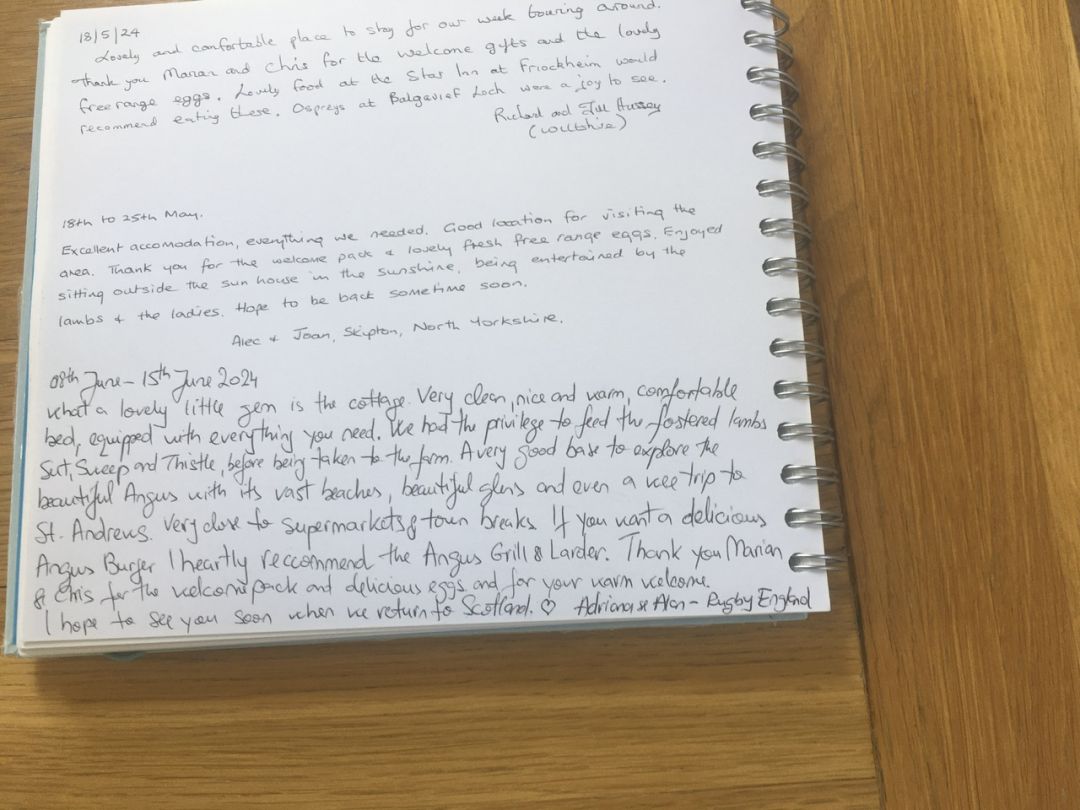 18/5/24
Lovely and confortable place to stay for our week touring around.
Thank you Marian and Chris for the welcome gifts and the lovely
free range eggs. Lovely food at the Star Inn at Friockheim would
recommend eating there. Ospreys at Balgavies Loch were a joy to see.
Richard and Jill Hussey
(Wiltshire)
18th to 25th May.
Excellent accomodation, everything we needed. Good location for visiting the
area. Thank you for the welcome pack & lovely fresh free range eggs. Enjoyed
sitting outside the sun house in the sunshine, being entertained by the
lambs & the ladies. Hope to be back sometime soon.
Alec & Joan, Skipton, North Yorkshire.
08th June - 15th June 2024
What a lovely little gem is the cottage. Very clean, nice and warm, comfortable
bed, equipped with everything you need. We had the privilege to feed the fostered lambs
Sut, Sweep and Thistle, before being taken to the farm. A very good base to explore the
beautiful Angus with its vast beaches, beautiful glens and even a wee trip to
St. Andrews. Very close to supermarkets & town breaks. If you want a delicious
Angus Burger I heartly reccommend the Angus Grill & Larder. Thank you Marian
& Chis for the welcome pack and delicious eggs and for your warm welcome.
I hope to see you soon when we return to Scotland. ♡ Adriana & Alan - Rugby England